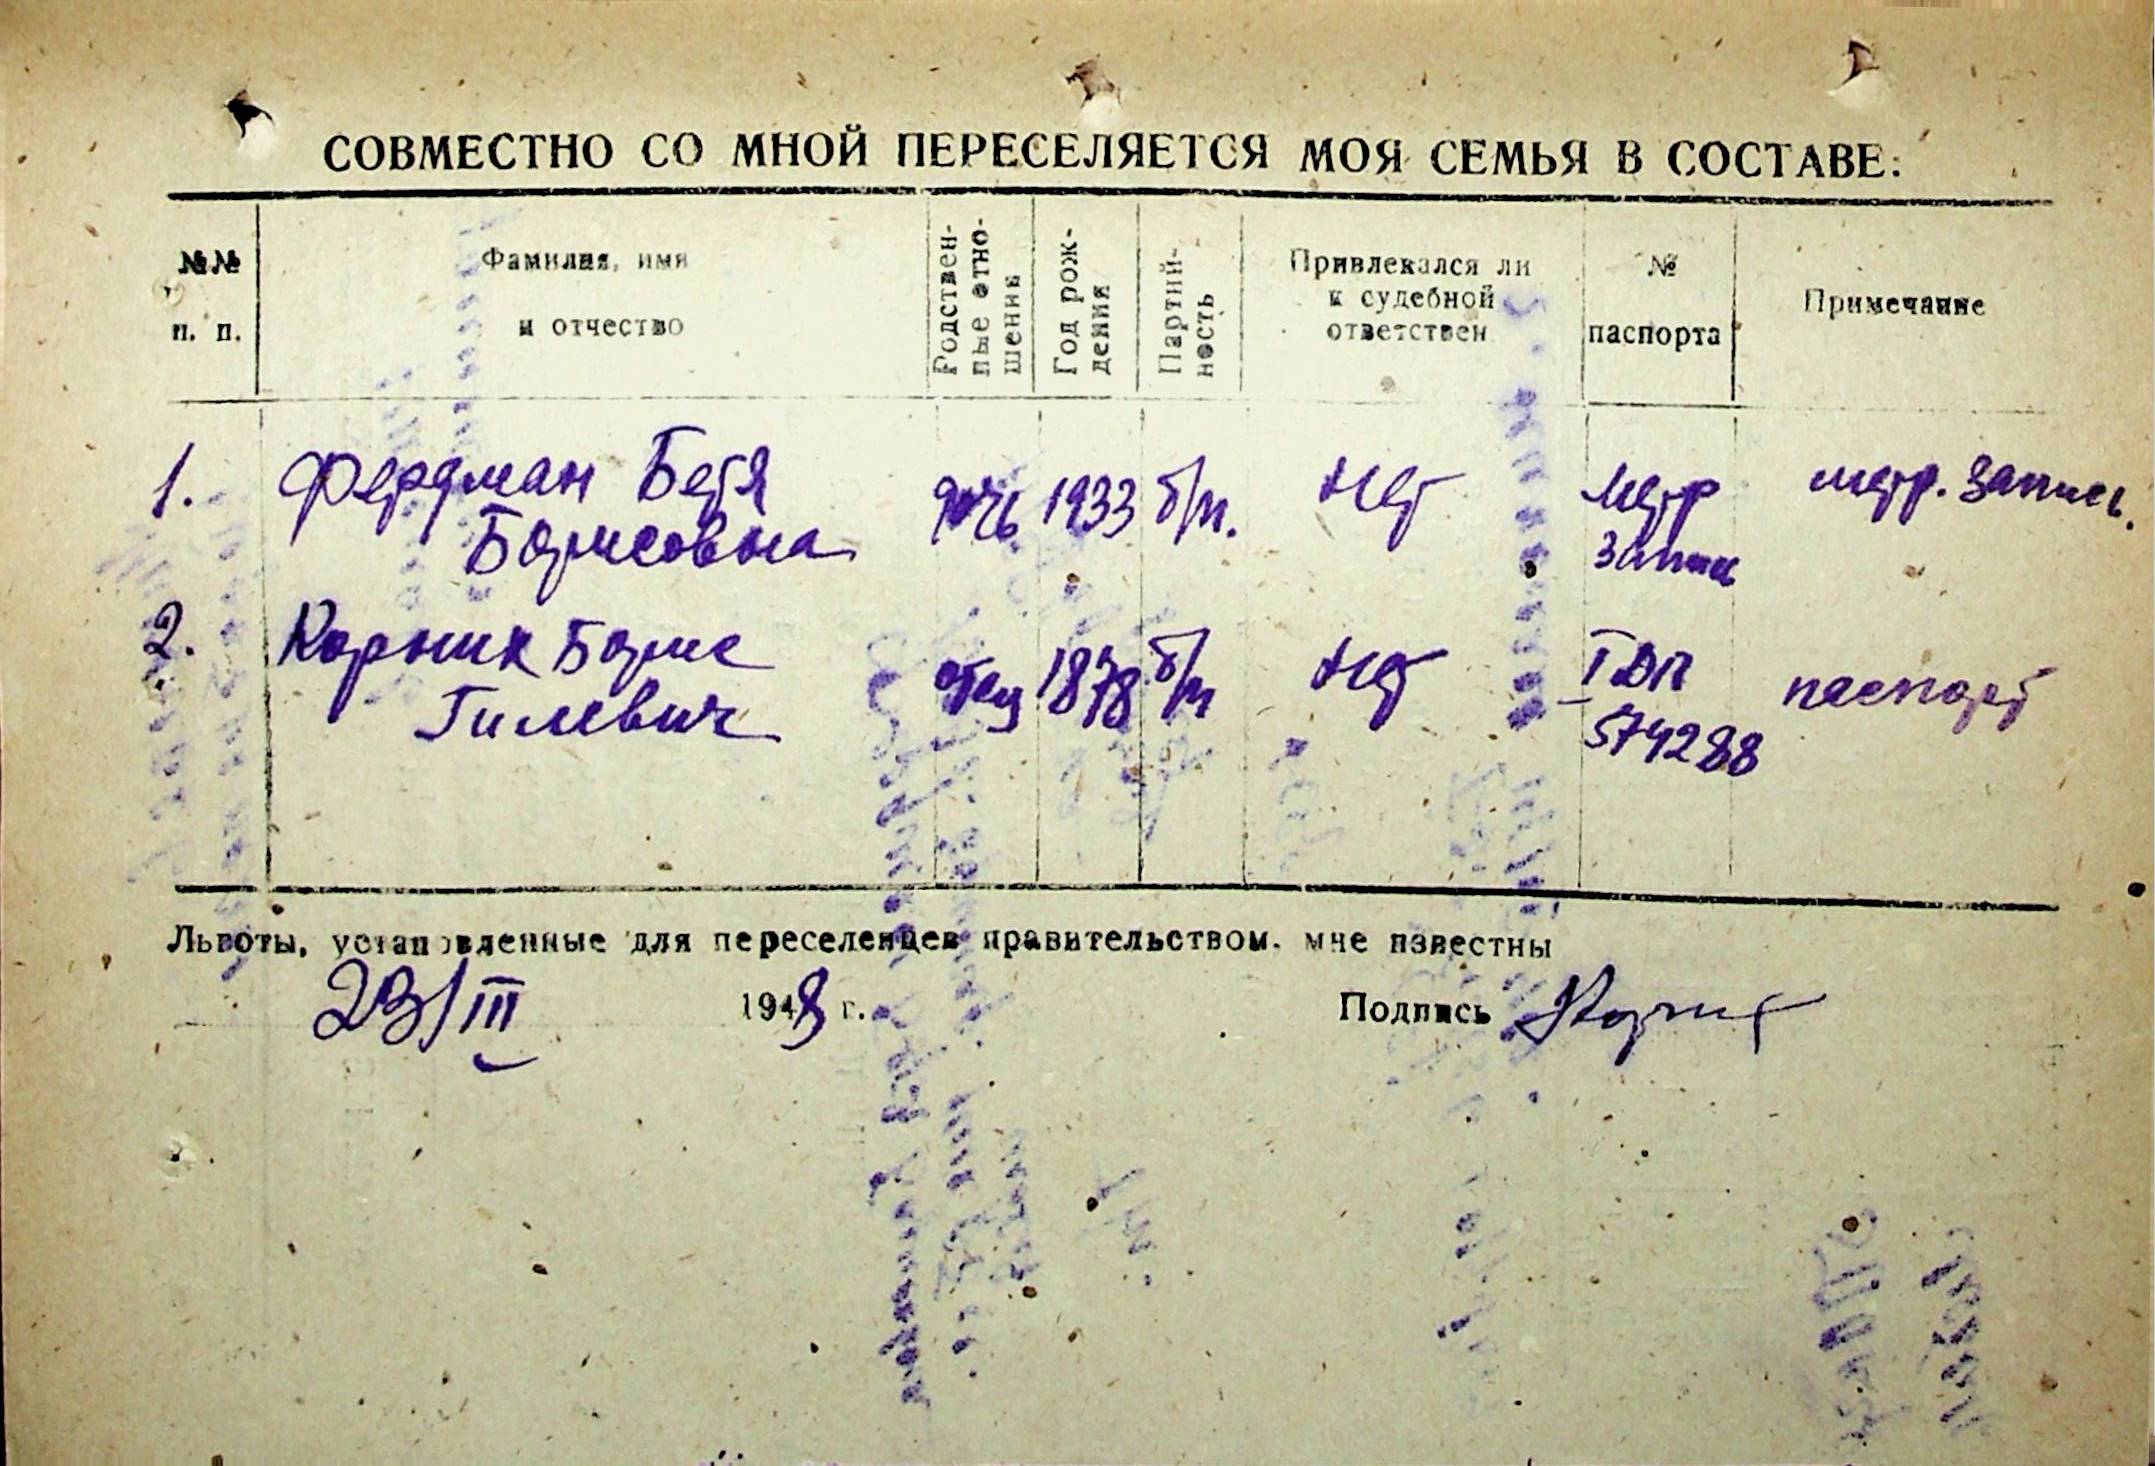 СОВМЕСТНО СО МНОЙ ПЕРЕСЕЛЯЕТСЯ МОЯ СЕМЬЯ В СОСТАВЕ:
№№ п. п. Фамилия, имя и отчество Родственные отношения Год рождения Партийность Привлекался ли к судебной ответствен № паспорта Примечание
1. Фердман Бетя дочь 1933 б/п. нет метр метр. запись.
Борисовна запись
2. Корник Борис отец 1878 б/п нет паспорт
Гилевич 574288
Льготы, установленные для переселенцев правительством. мне известны
23/III 1948 г. Подпись